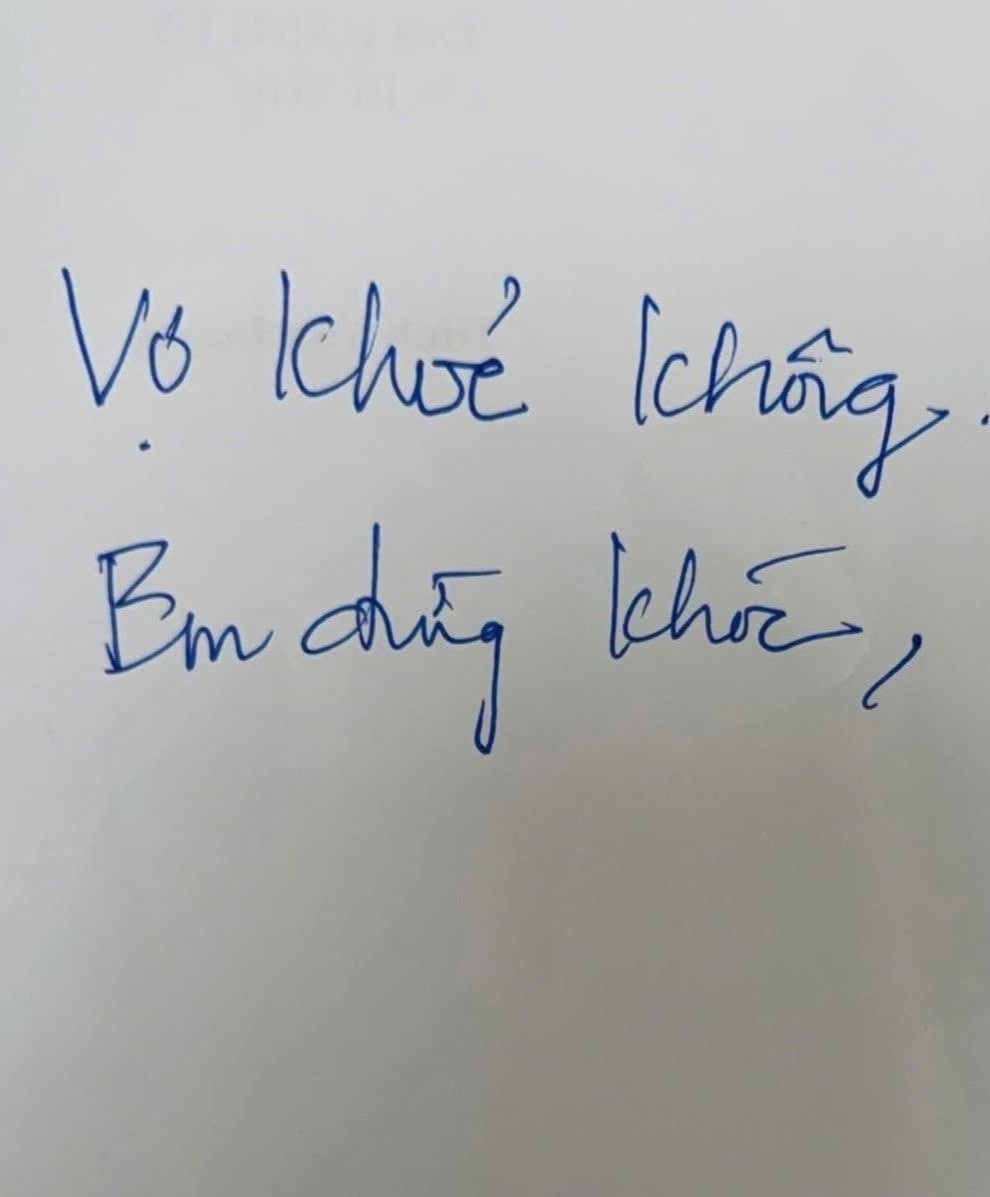 Vợ khoẻ không.
Em đừng khóc,